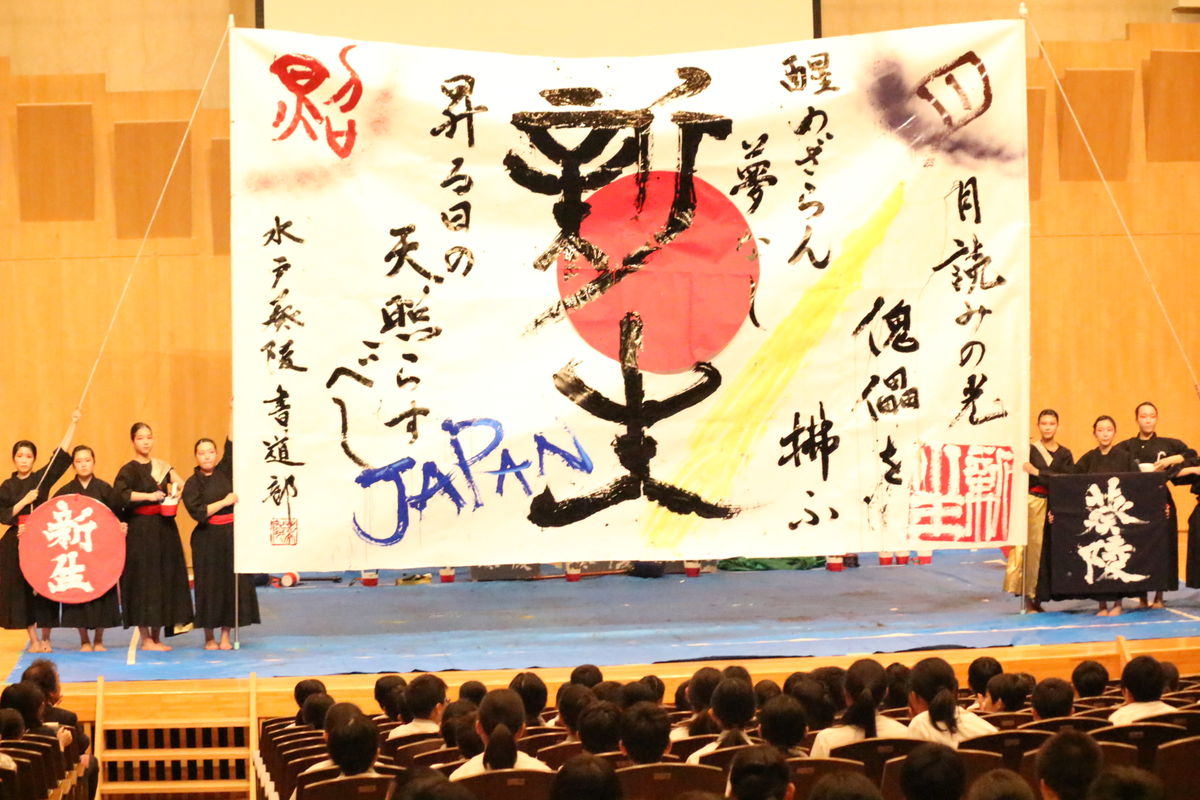 月読みの光
傀儡を
拂ふ
醒めざらん
夢なし
新生
昇る日の
天照らす
べし
JAPAN
水戸葵陵書道部
新生
新生
葵陵